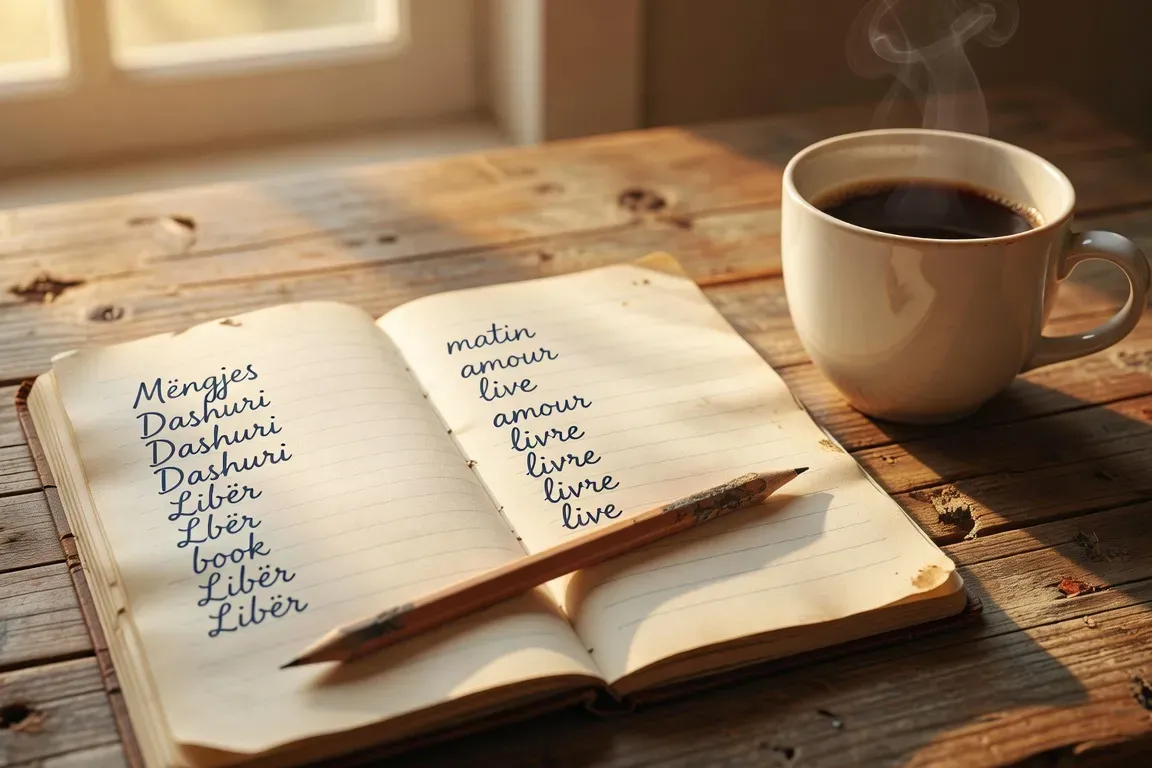 Mëngjes
Dashuri
Dashuri
Dashuri
Libër
Lbër
book
Libër
Libër
matin
amour
live
amour
livre
livre
livre
live